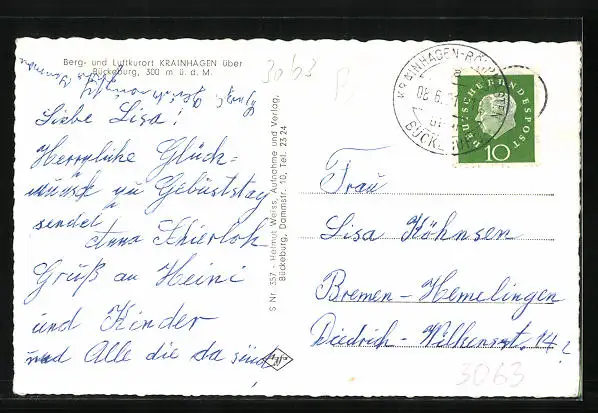 Berg- und Luftkurort KRAINHAGEN über
Bückeburg, 300 m ü. d. M.
Liebe Lisa!
Herrzliche Glück=
wünsche zu Gebütstag
sendet
Anna Schierloh
Gruß an Heini
und Kinder
und Alle die da sind
S Nr. 357 - Helmut Weiss, Aufnahme und Verlag,
Bückeburg, Dammstr. 10, Tel. 23 24
3063
KRAINHAGEN-RÖHRKASTEN
BÜCKEBURG
DEUTSCHE BUNDESPOST
10
Frau
Lisa Köhnsen
Bremen - Hemelingen
Diedrich-Wilkenstr. 14
3063